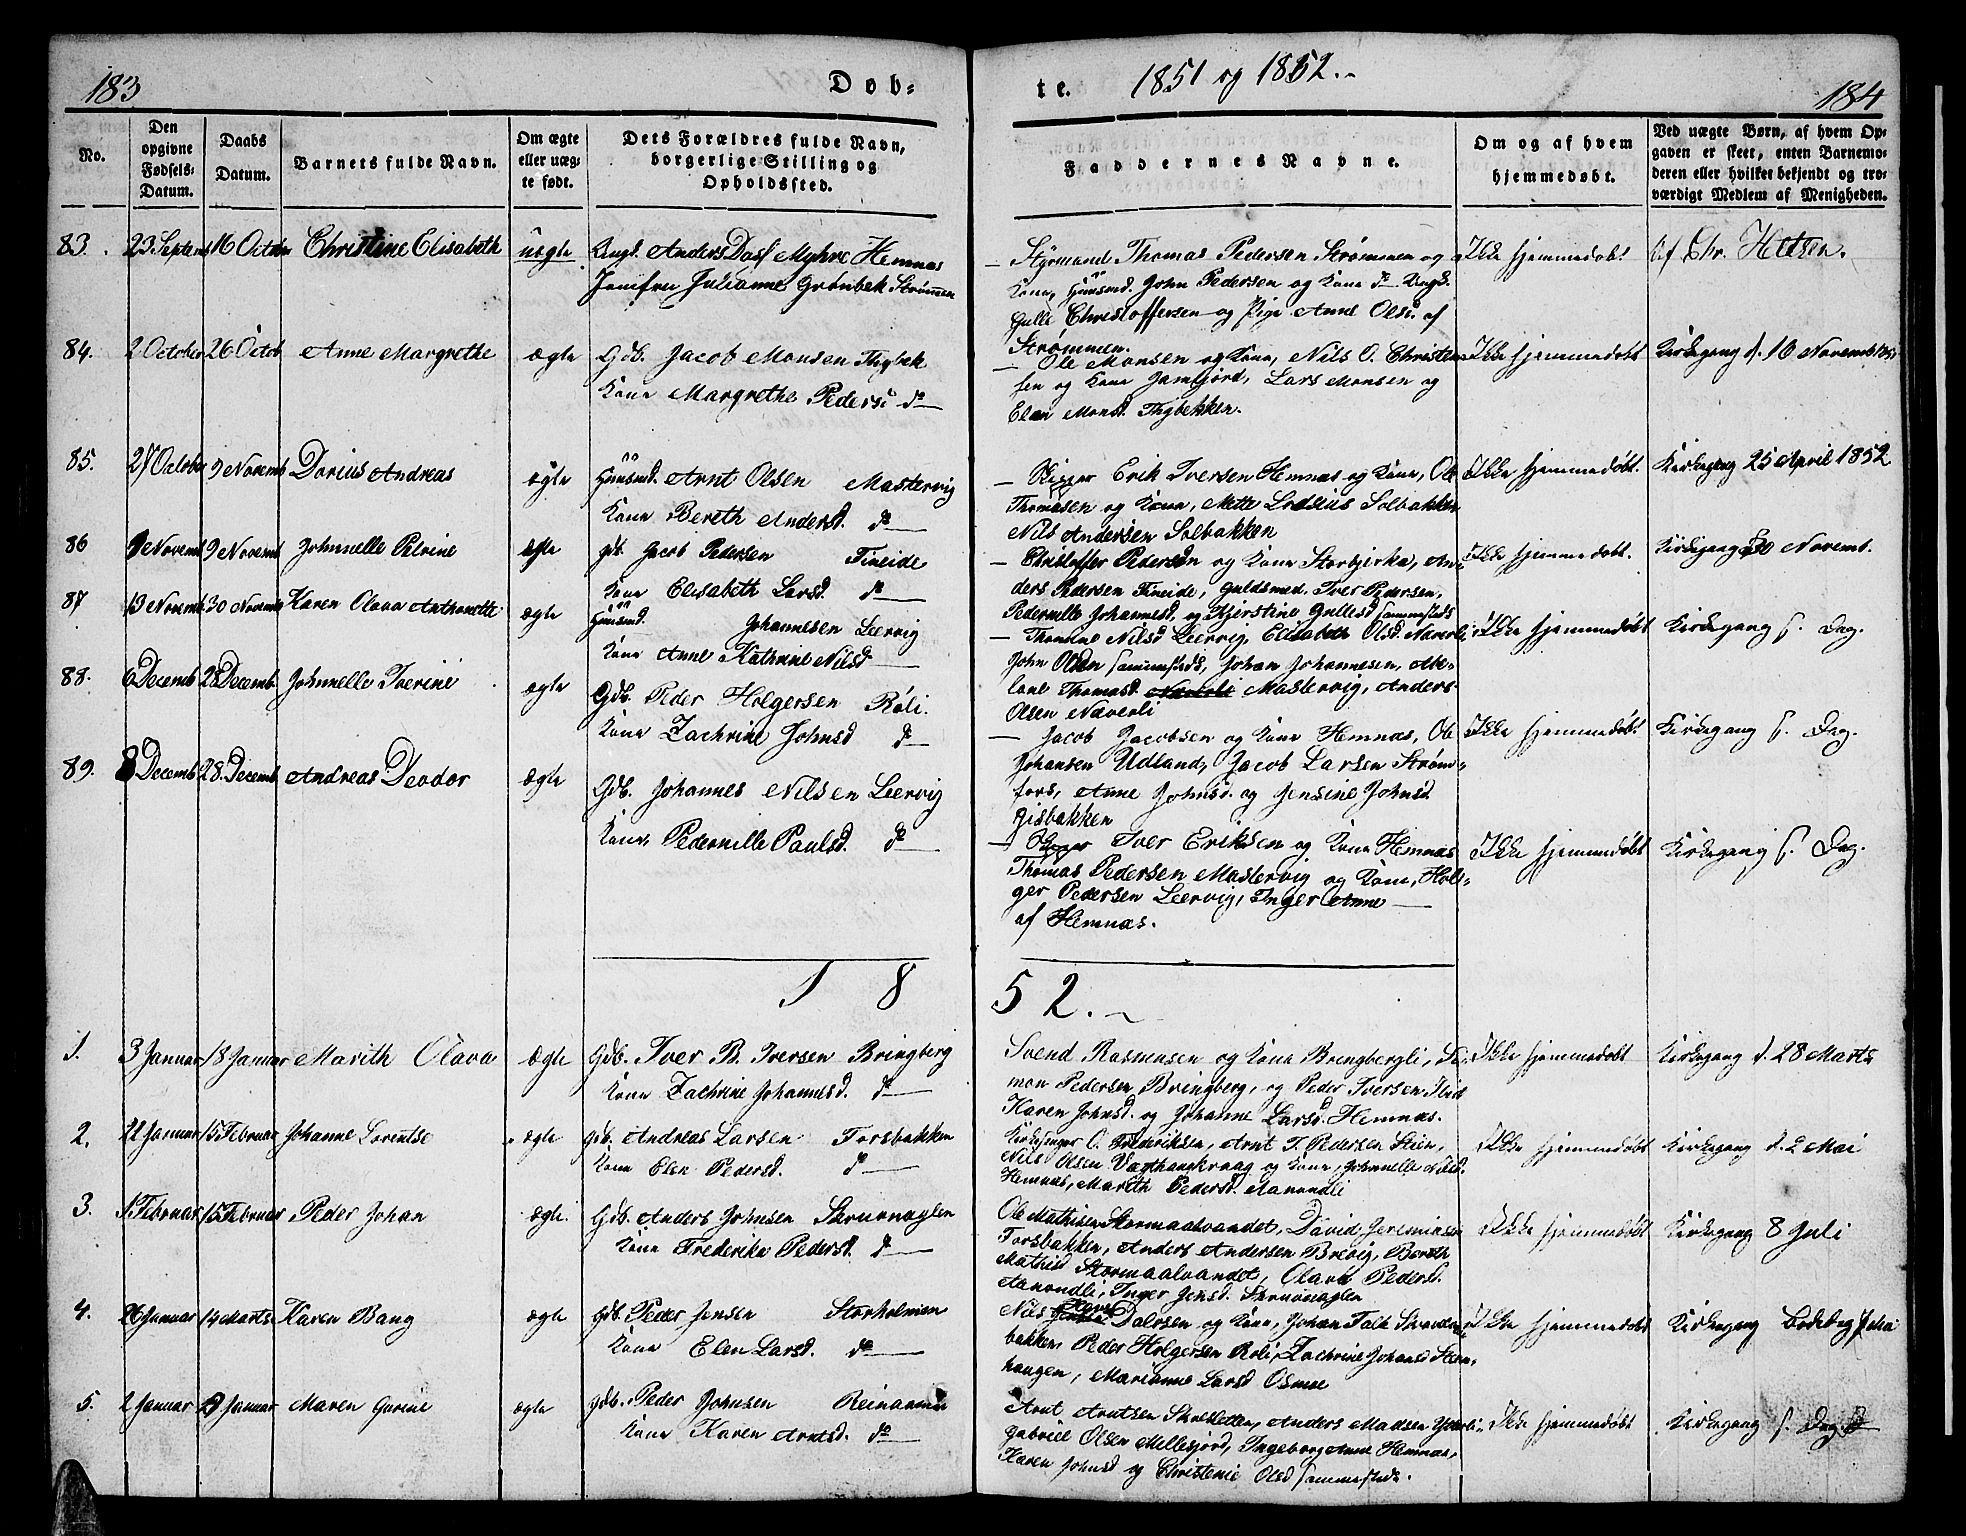 183
Døb-
te.
1851 og 1852.
184
No.
Den opgivne Fødsels-Datum.
Daabs Datum.
Barnets fulde Navn.
Om ægte eller uæg-te født.
Dets Forældres fulde Navn, borgerlige Stilling og Opholdsted.
Faddernes Navne.
Om og af hvem hjemmedøbt.
Ved uægte Børn, af hvem Op-gaven er skeet, enten Barnemo-deren eller hvilket bekjendt og tro-værdigt Medlem af Menigheden.
83. 23 Septemb 16 October Christine Elisabeth uægte Ungk. Anders Myhre Hemnæs
Jomfru Julianne Grønbek Strømmen
Styrmand Thomas Pedersen Strømmen og
Kone, Huusmd. John Pedersen og Kone do Ungk.
Gulle Christoffersen og Pige Anne Olsd. af
Strømmen.
Ikke hjemmedøbt
Af Chr. Heltzen.
84. 2 October 26 Octob Anne Margrethe ægte Gdb. Jacob Monsen Thybek
Kone Margrethe Pedersd do
Ole Monsen og Kone, Nils O. Christen-
sen og Kone Jamtjord, Lars Monsen og
Elen Monsd. Thybekken.
Ikke hjemmedøbt
Kirkegang d. 16 Novemb.
85. 27 October 9 Novemb Dorius Andreas ægte Huusmd. Arnt Olsen Mastervig
Kone Bereth Andersd. do
Skipper Erik Iversen Hemnæs og Kone, Ole
Thomasen og Kone, Mette Solbakken
Nils Andersen Solbakken
Ikke hjemmedøbt.
Kirkegang 25 April 1852
86 Novemb 9 Novemb Johnnelle Pelrine ægte gdb. Jacob Pedersen Fineide
Kone Elisabeth Larsd do
Christoffer Pedersen og Kone Storbjerka, An-
ders Pedersen Fineide, Guldsmed. Iver Pedersen,
Pedernelle Johannesd, og Kjerstine Gullesd sammesteds
Ikke hjemmedøbt.
Kirkegang 30 Novemb.
87 13 Novemb 30 Novemb Karen Olava Anthonette ægte Huusmd. Johannesen Leervig
Kone Anne Kathrine Nilsd
Thomine Nilsd Leervig, Elisabeth Olsd. Naverli
John Olsen sammesteds, Johan Johannesen, Abe-
lone Thomasd. Mastervig, Anders
Olsen Naverli
Ikke hjemmedøbt
Kirkegang s. Dag.
88. 6 Decemb 28 Decemb Johnnelle Iverine ægte Gdb. Peder Holgersen Røli.
Kone Zachrine Johnsd do
Jacob Jacobsen og Kone Hemnæs, Ole
Johansen Udland, Jacob Larsen Strøm-
fors, Anne Johnsd. og Jensine Johnsd
Gisbakken
Ikke hjemmedøbt.
Kirkegang s. Dag.
89. 8 Decemb 28. Decemb Andreas Deodor ægte Gdb. Johannes Nilsen Leervig
Kone, Pedernille Paulsd. do
Skipper Iver Eriksen og Kone Hemnæs
Thomas Pedersen Mastervig og Kone, Hol-
ger Pedersen Leervig, Inger Anne
af Hemnæs.
Ikke hjemmedøbt
Kirkegang s. Dag.
1852.
1. 3 Januar 18 Januar Marith Olava ægte Gdb. Iver B. Iversen Bringberg
Kone Zachrine Johannesd. do
Svend Rasmusen og Kone Bringbergli, Si-
mon Pedersen Bringberg, og Peder Iversen
Karen Johnsd. og Johanne Larsd. Hemnæs.
Ikke hjemmedøbt
Kirkegang d. 28 Marts
2. 22 Januar 15 Februar Johanne Lorentse ægte gdb. Andreas Larsen Forsbakken
Kone Elen Pedersd. do
Kirkesanger O. Frederiksen, Arnt I. Pedersen Steien,
Nils Olsen og Kone, Johnnelle Nilsd.
Hemnæs, Marith Pedersd. Aanondli
Ikke hjemmedøbt
Kirkegang d. 2 Mai
3. 1 Februar 15 Februar Peder Johan ægte. Gdb. Anders Johnsen Skruvnaglen
Kone Frederike Pedersd. do
Ole Mathisen Stormaalvandet, David Jeremiasen
Forsbakken, Anders Andersen Brevig, Bereth
Mathisd Stormaalvandet, Olava Pedersd.
Aanondli, Inger Jensd. Skruvnaglen
Ikke hjemmedøbt
Kirkegang 8 Juli
4. 26 Januar 14 Marts Karen Bang ægte gdb. Peder Jensen Storholmen
Kone Elen Larsd. do
Nils Dalosen og Kone, Johan Falk
bakken, Peder Holgersen Røli, Zachrine Johansd Steen-
haugen, Marianne Larsd Osmoe
Ikke hjemmedøbt
Kirkegang
5. 2 Januar Januar Maren Gurine ægte gdb. Peder Johnsen Reinaamoe
Kone Karen Arntsd. do
Arnt Arntsen Skresletten, Anders Madsen Ytterli
Gabriel Olsen Millesjord, Ingeborg Anne Hemnæs,
Karen Johnsd og Christenie Olsd sammesteds.
Ikke hjemmedøbt
Kirkegang s. Dag